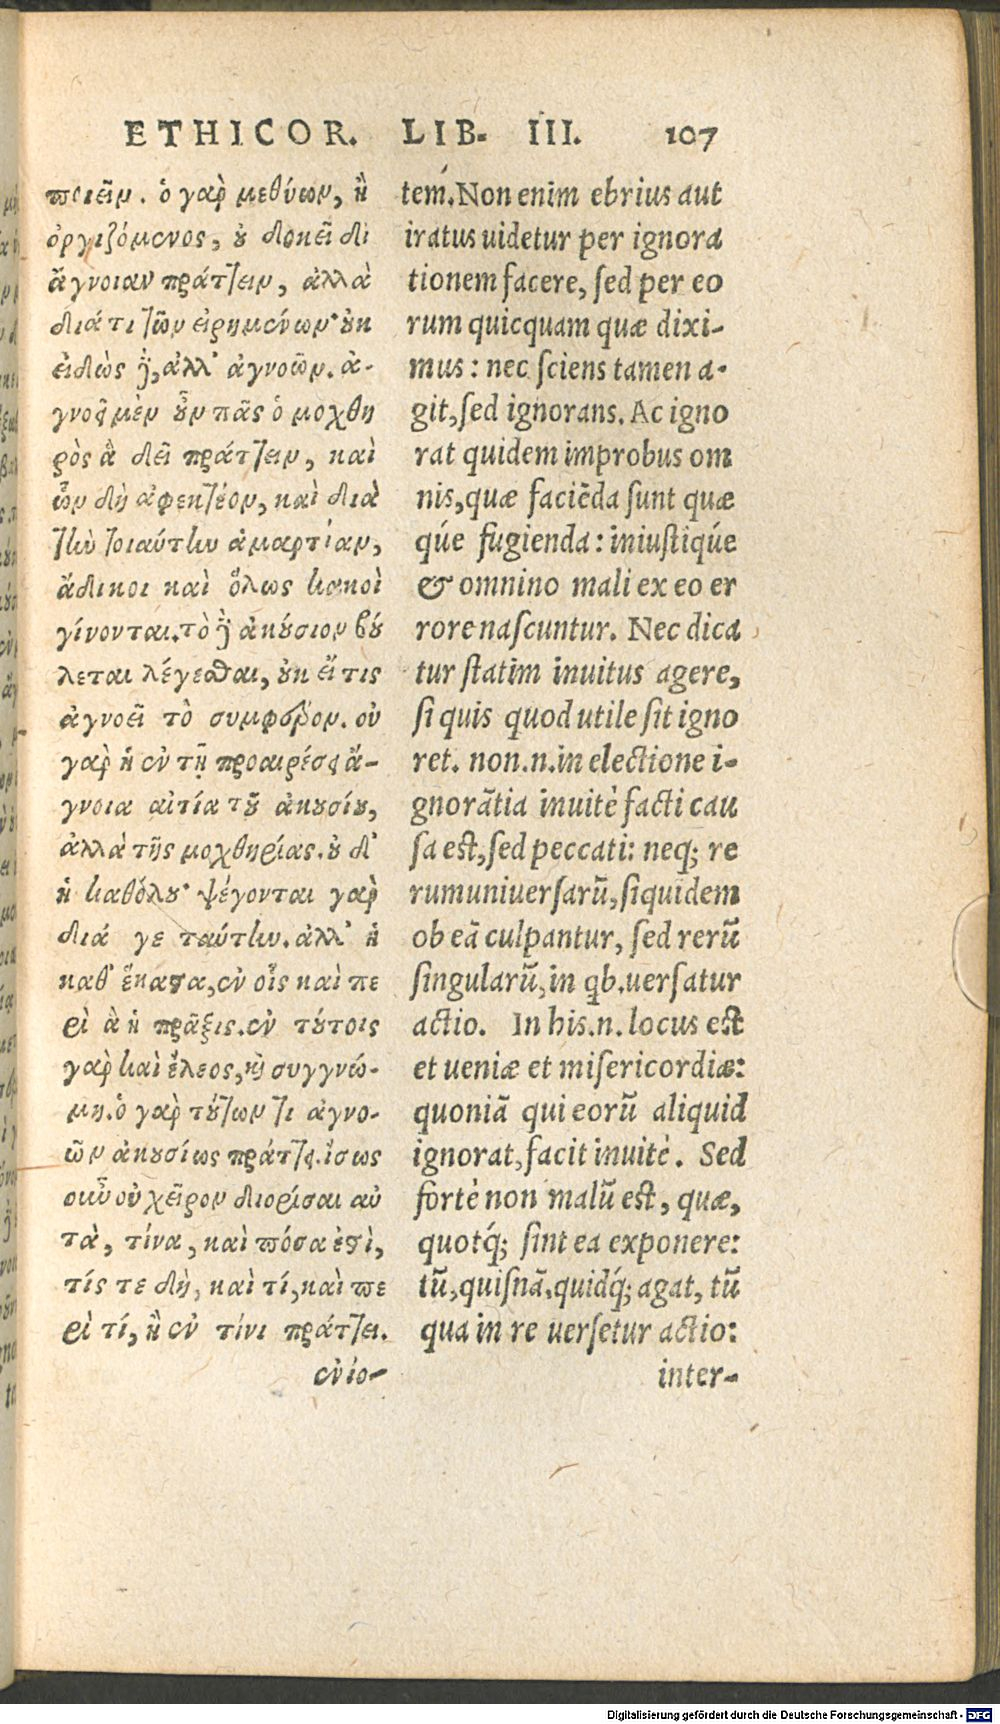 ETHICOR. LIB. III. 107
ποιεῖν. ὁ γὰρ μεθύων, ἢ
ὀργιζόμενος, ȣ δοκεῖ δι
ἄγνοιαν πράτειν, ἀλλὰ
διά τι τῶν εἰρημένων· ȣκ
εἰδὼς δὲ, ἀλλ' ἀγνοῶν. ἀ-
γνοεῖ μὲν ȣν πᾶς ὁ μοχθη
ρὸς ἃ δεῖ πράτειν, καὶ
ὧν δὴ ἀφεκτέον, καὶ διὰ
τὴν τοιαύτην ἁμαρτίαν,
ἄδικοι καὶ ὅλως κακοὶ
γίνονται. τὸ δὲ ἀκȣσιον βȣ
λεται λέγεσθαι, ȣκ εἴ τις
ἀγνοεῖ τὸ συμφέρον. οὐ
γὰρ ἡ ἐν τῇ προαιρέσει ἄ-
γνοια αἰτία τȣ ἀκȣσίȣ,
ἀλλὰ τῆς μοχθηρίας. ȣ δ'
ἡ καθόλȣ· ψέγονται γὰρ
διά γε ταύτην. ἀλλ' ἡ
καθ' ἕκαστα, ἐν οἷς καὶ πε
ρὶ ἃ ἡ πρᾶξις. ἐν τȣτοις
γὰρ καὶ ἔλεος, καὶ συγγνώ-
μη. ὁ γὰρ τȣτων τι ἀγνο-
ῶν ἀκȣσίως πράτει. ἴσως
οὖν οὐ χεῖρον διορίσαι αὐ
τὰ, τίνα, καὶ πόσα ἐστὶ,
τίς τε δὴ, καὶ τί, καὶ πε
ρὶ τί, ἢ ἐν τίνι πράτει.
ἐνίο-
teḿ. Non enim ebrius aut
iratus uidetur per ignora
tionem facere, sed per eo
rum quicquam quæ dixi-
mus: nec sciens tamen a-
git, sed ignorans. Ac igno
rat quidem improbus om
nis, quæ faciẽda sunt quæ
qúe fugienda: iniustiqúe
& omnino mali ex eo er
rore nascuntur. Nec dica
tur statim inuitus agere,
si quis quod utile sit igno
ret. non.n.in electione i-
gnorãtia inuitè facti cau
sa est, sed peccati: neq; re
rum uniuersarũ, siquidem
ob eã culpantur, sed rerũ
singularũ, in qb.uersatur
actio. In his.n. locus est
et ueniæ et misericordiæ:
quoniã qui eorũ aliquid
ignorat, facit inuitè. Sed
fortè non malũ est, quæ,
quotq́; sint ea exponere:
tũ, quisnã, quidq́; agat, tũ
qua in re uersetur actio:
inter-
Digitalisierung gefördert durch die Deutsche Forschungsgemeinschaft - DFG